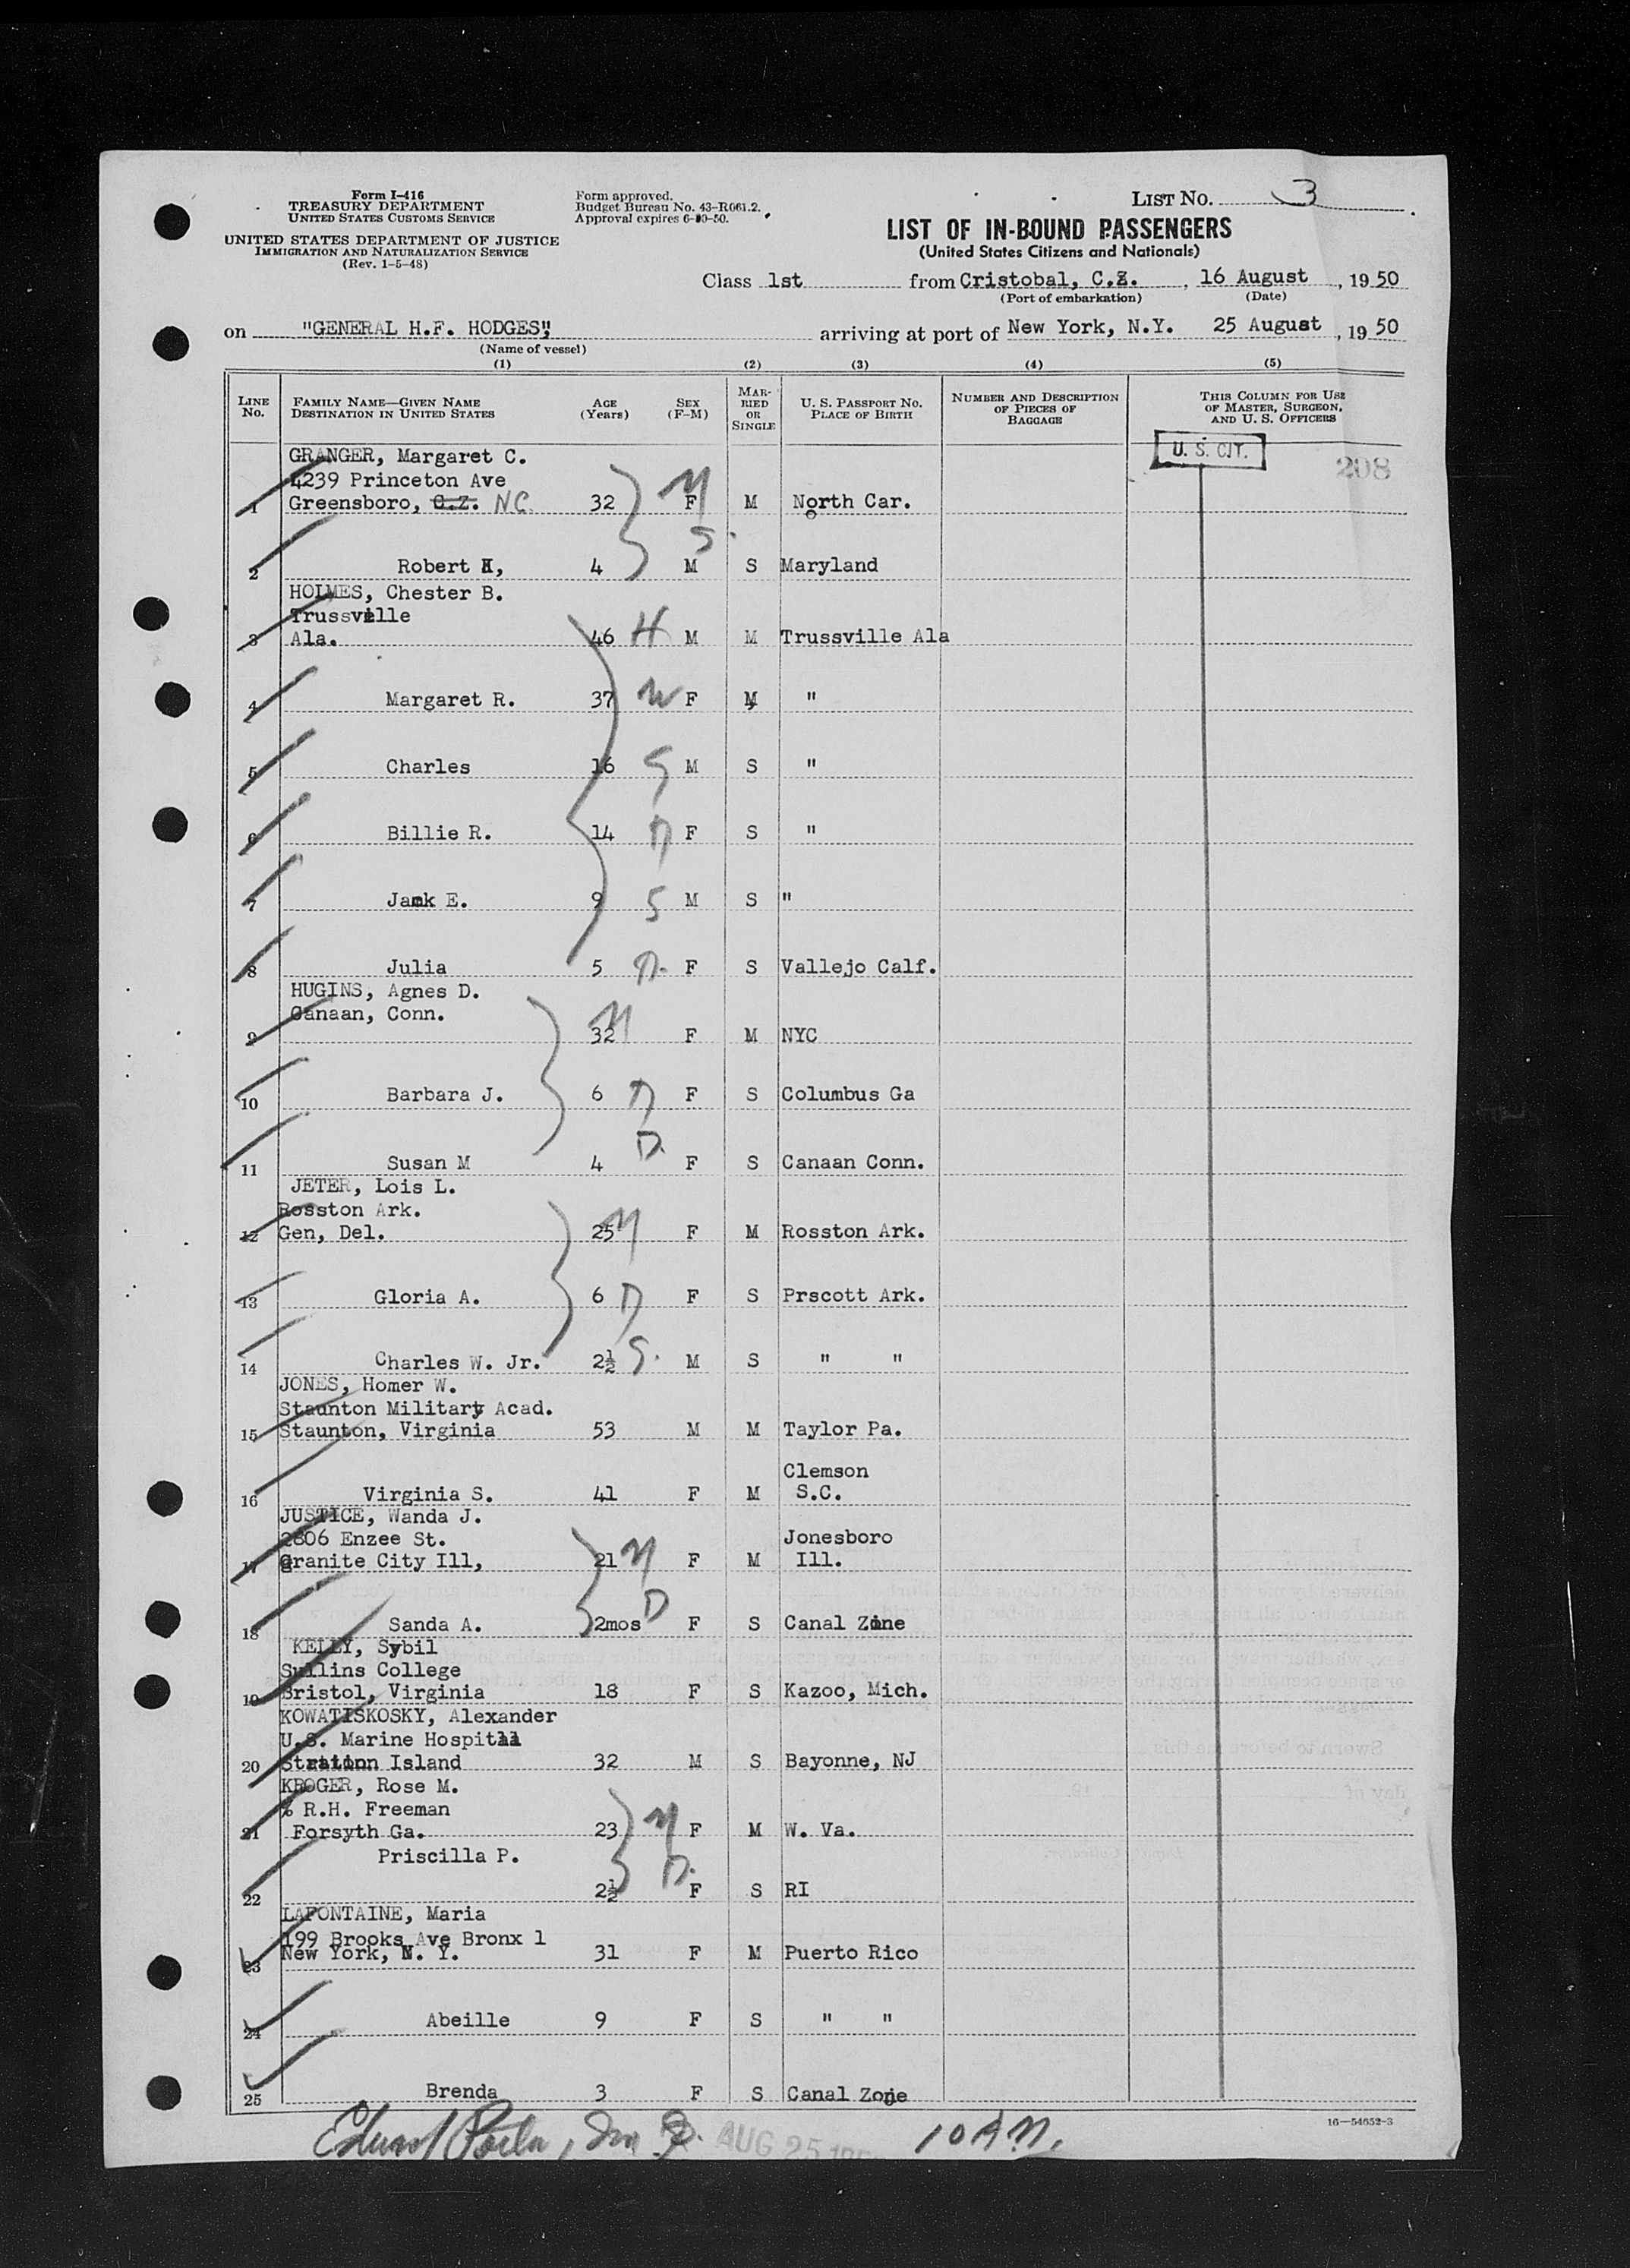 Form I-416
TREASURY DEPARTMENT
UNITED STATES CUSTOMS SERVICE
UNITED STATES DEPARTMENT OF JUSTICE
IMMIGRATION AND NATURALIZATION SERVICE
(Rev. 1-5-48)
Form approved.
Budget Bureau No. 43-R061.2.
Approval expires 6-30-50.
LIST NO. 3
LIST OF IN-BOUND PASSENGERS
(United States Citizens and Nationals)
Class 1st from Cristobal, C.Z. , 16 August , 19 50
(Port of embarkation) (Date)
on "GENERAL H.F. HODGES", arriving at port of New York, N.Y. 25 August , 19 50
(Name of vessel)
(1) (2) (3) (4) (5)
LINE No. FAMILY NAME—GIVEN NAME DESTINATION IN UNITED STATES AGE (Years) SEX (F-M) MARRIED OR SINGLE U. S. PASSPORT NO. PLACE OF BIRTH NUMBER AND DESCRIPTION OF PIECES OF BAGGAGE THIS COLUMN FOR USE OF MASTER, SURGEON, AND U. S. OFFICERS
U. S. CIT. 298
GRANGER, Margaret C.
4239 Princeton Ave
1 Greensboro, C.Z. NC. 32 M F M North Car.
S.
2 Robert H, 4 M S Maryland
HOLMES, Chester B.
Trussville
3 Ala. 46 H M M Trussville Ala
4 Margaret R. 37 W F M "
5 Charles 16 S M S "
6 Billie R. 14 D F S "
7 Jack E. 9 S M S "
8 Julia 5 D. F S Vallejo Calf.
HUGINS, Agnes D.
Canaan, Conn.
9 32 M F M NYC
10 Barbara J. 6 D F S Columbus Ga
D.
11 Susan M 4 F S Canaan Conn.
JETER, Lois L.
Rosston Ark.
12 Gen, Del. 25 M F M Rosston Ark.
13 Gloria A. 6 D F S Prscott Ark.
14 Charles W. Jr. 2½ S. M S " "
JONES, Homer W.
Staunton Military Acad.
15 Staunton, Virginia 53 M M Taylor Pa.
Clemson
16 Virginia S. 41 F M S.C.
JUSTICE, Wanda J.
2806 Enzee St. Jonesboro
17 Granite City Ill, 21 M F M Ill.
18 Sanda A. 2mos D F S Canal Zone
KELLY, Sybil
Sullins College
19 Bristol, Virginia 18 F S Kazoo, Mich.
KOWATISKOSKY, Alexander
U.S. Marine Hospital
20 Island 32 M S Bayonne, NJ
KROGER, Rose M.
% R.H. Freeman
21 Forsyth Ga. 23 M F M W. Va.
Priscilla P.
22 2½ D. F S RI
LAFONTAINE, Maria
199 Brooks Ave Bronx 1
23 New York, N. Y. 31 F M Puerto Rico
24 Abeille 9 F S " "
25 Brenda 3 F S Canal Zone
16—54652-3
AUG 25 10 AM.